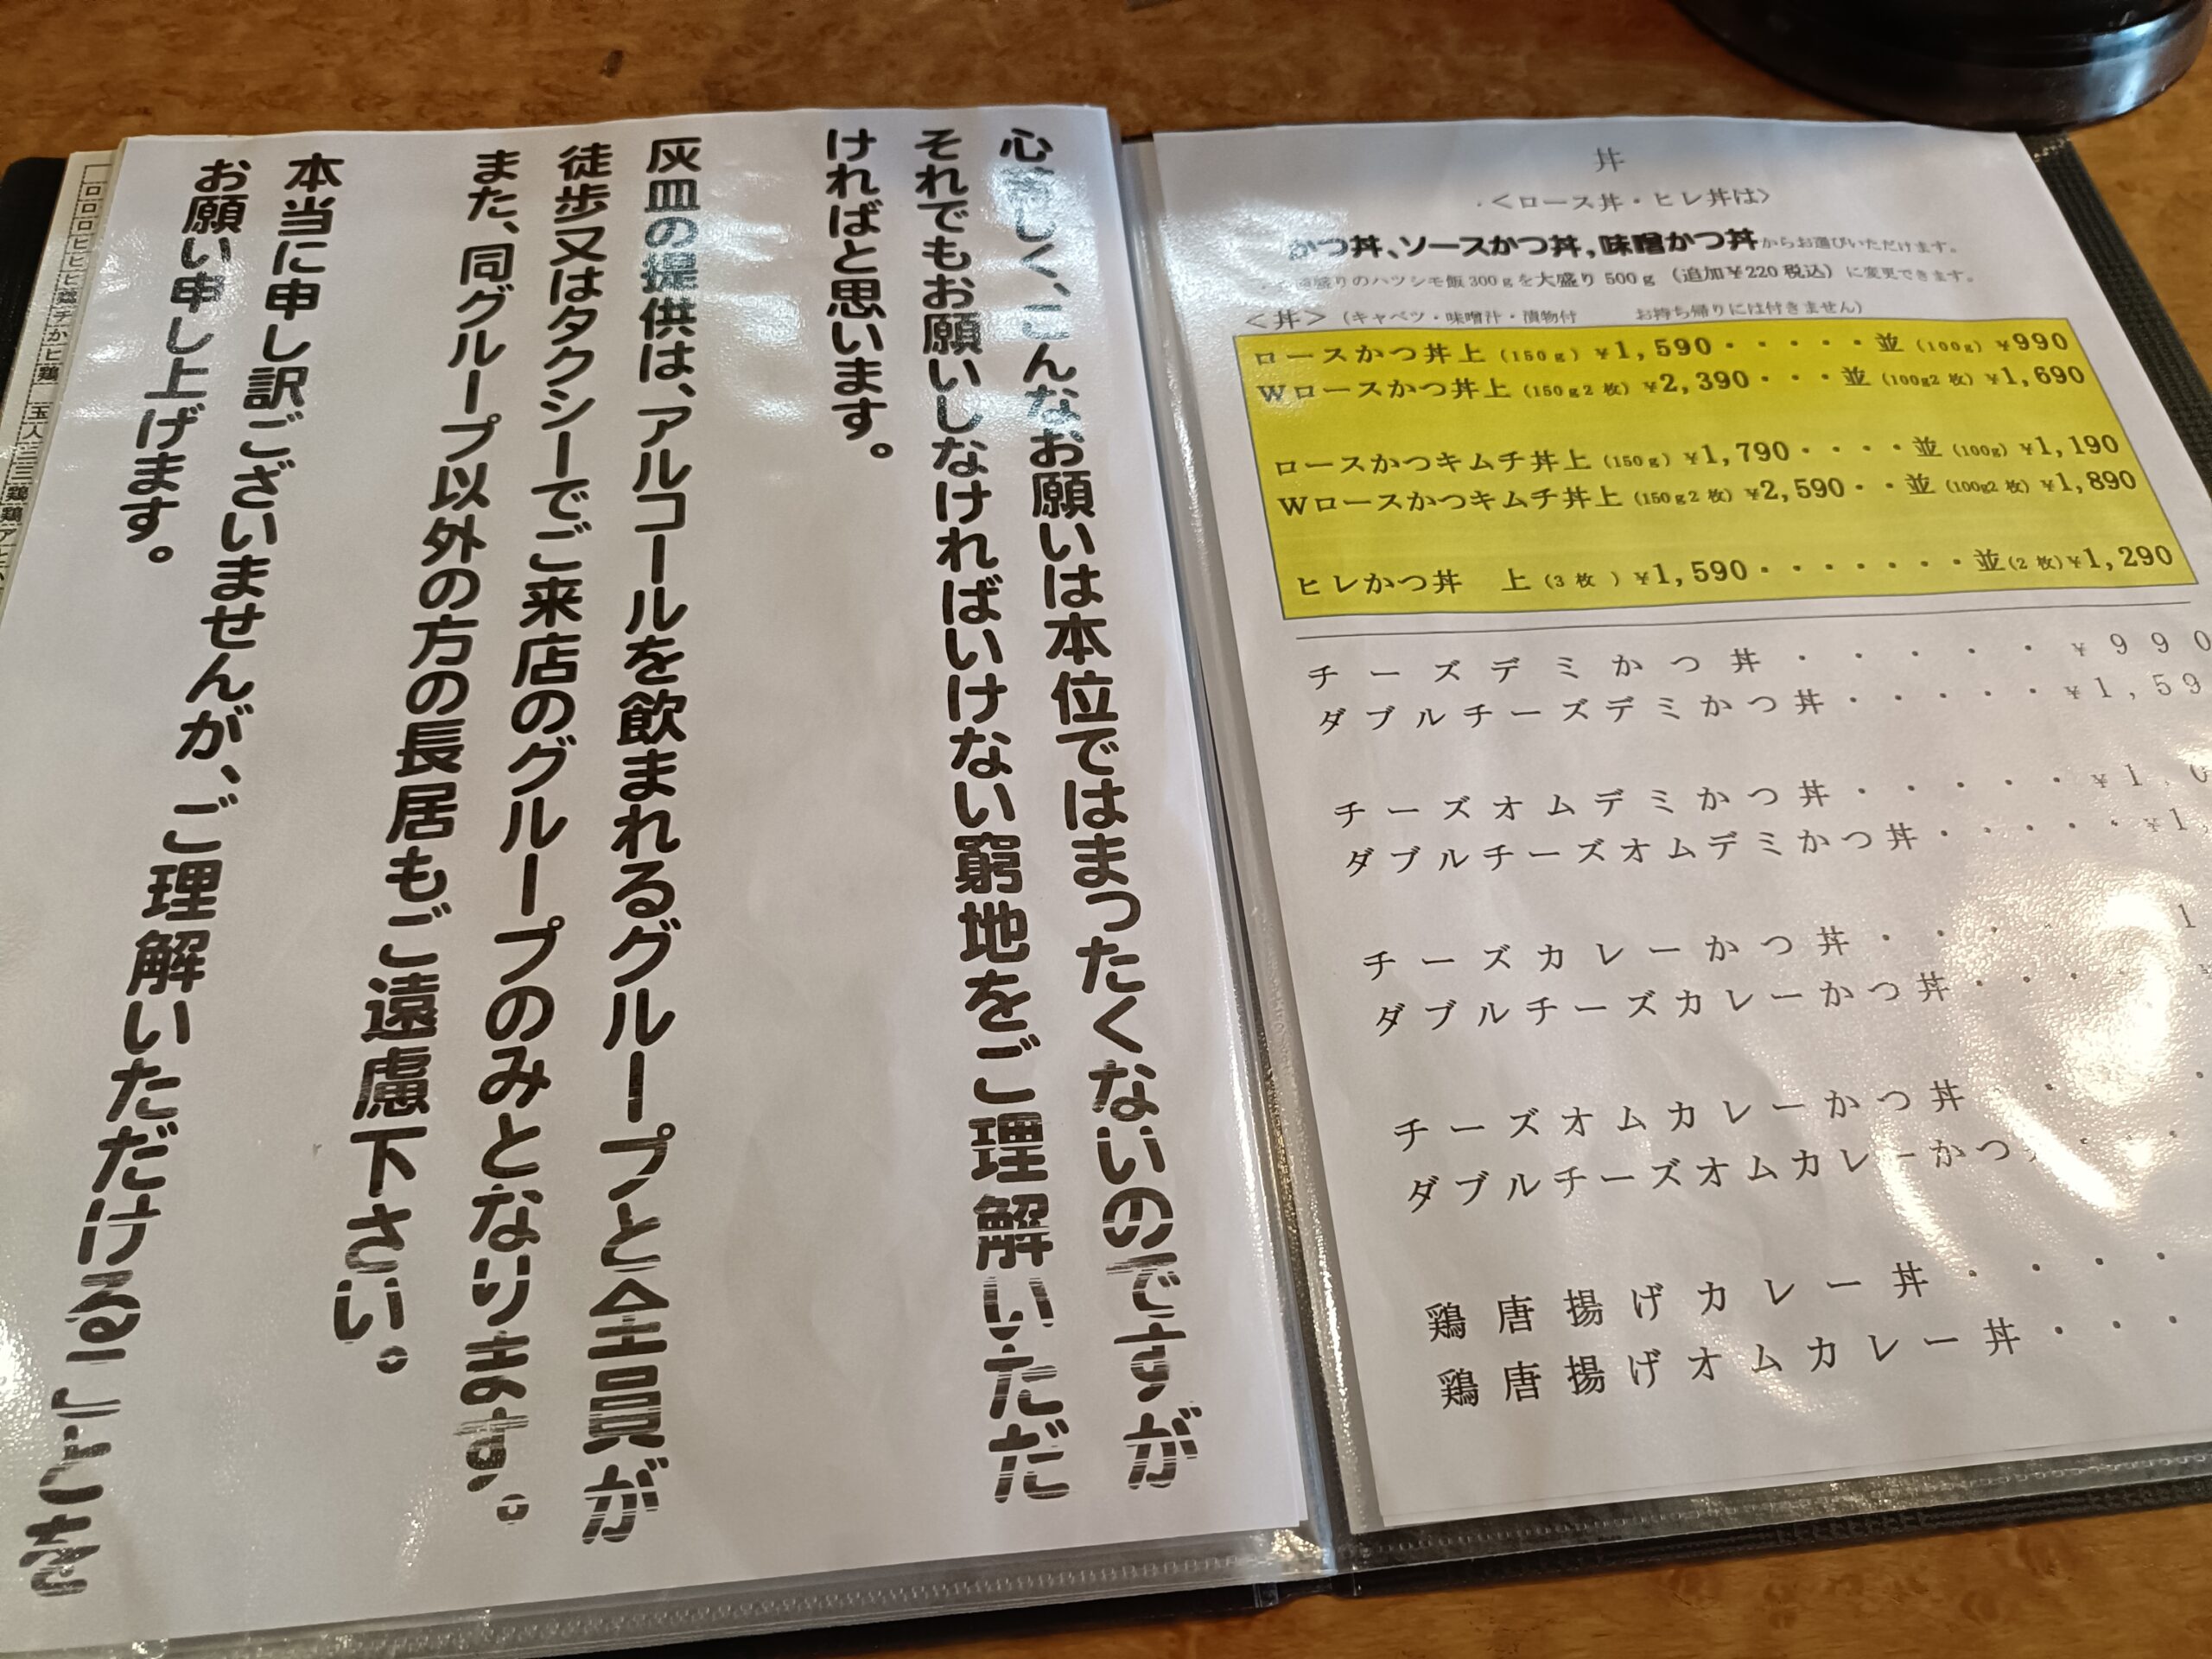 心苦しく、こんなお願いは本位ではまったくないのですが
それでもお願いしなければいけない窮地をご理解いただ
ければと思います。
灰皿の提供は、アルコールを飲まれるグループと全員が
徒歩又はタクシーでご来店のグループのみとなります。
また、同グループ以外の方の長居もご遠慮下さい。
本当に申し訳ございませんが、ご理解いただけることを
お願い申し上げます。
丼
<ロース丼・ヒレ丼は>
かつ丼、ソースかつ丼,味噌かつ丼からお選びいただけます。
盛りのハツシモ飯300gを大盛り500g(追加¥220税込)に変更できます。
<丼>(キャベツ・味噌汁・漬物付 お持ち帰りには付きません)
ロースかつ丼上(150g)¥1,590・・・・・並(100g)¥990
Wロースかつ丼上(150g2枚)¥2,390・・・並(100g2枚)¥1,690
ロースかつキムチ丼上(150g)¥1,790・・・・並(100g)¥1,190
Wロースかつキムチ丼上(150g2枚)¥2,590・・並(100g2枚)¥1,890
ヒレかつ丼 上(3枚)¥1,590・・・・・・・並(2枚)¥1,290
チーズデミかつ丼・・・・・¥990
ダブルチーズデミかつ丼・・・・・¥1,59
チーズオムデミかつ丼・・・・・¥1
ダブルチーズオムデミかつ丼・・・・・¥1
チーズカレーかつ丼・・・
ダブルチーズカレーかつ丼・・・
チーズオムカレーかつ丼・・・
ダブルチーズオムカレーかつ
鶏唐揚げカレー丼・・・・
鶏唐揚げオムカレー丼・・・